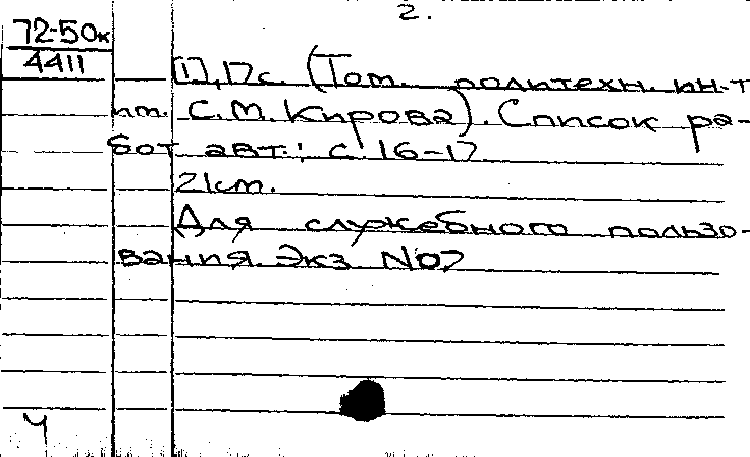 2.
72-50к
4411
[1], 17с. (Том. политехн. ин-т
им. С.М. Кирова). Список ра-
бот авт.: с. 16-17
21см.
Для служебного пользо-
вания. Экз №07
Ч